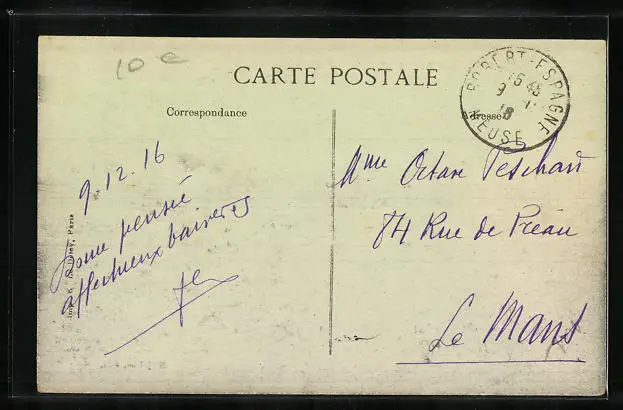 10 e
CARTE POSTALE
Correspondance
Adresse
ROBERT-ESPAGNE
16 45
9
16
MEUSE
9.12.16
Bonne pensée
affectueux baisers
Mme Octave Peschard
84 Rue de Préau
Le Mans
Paris